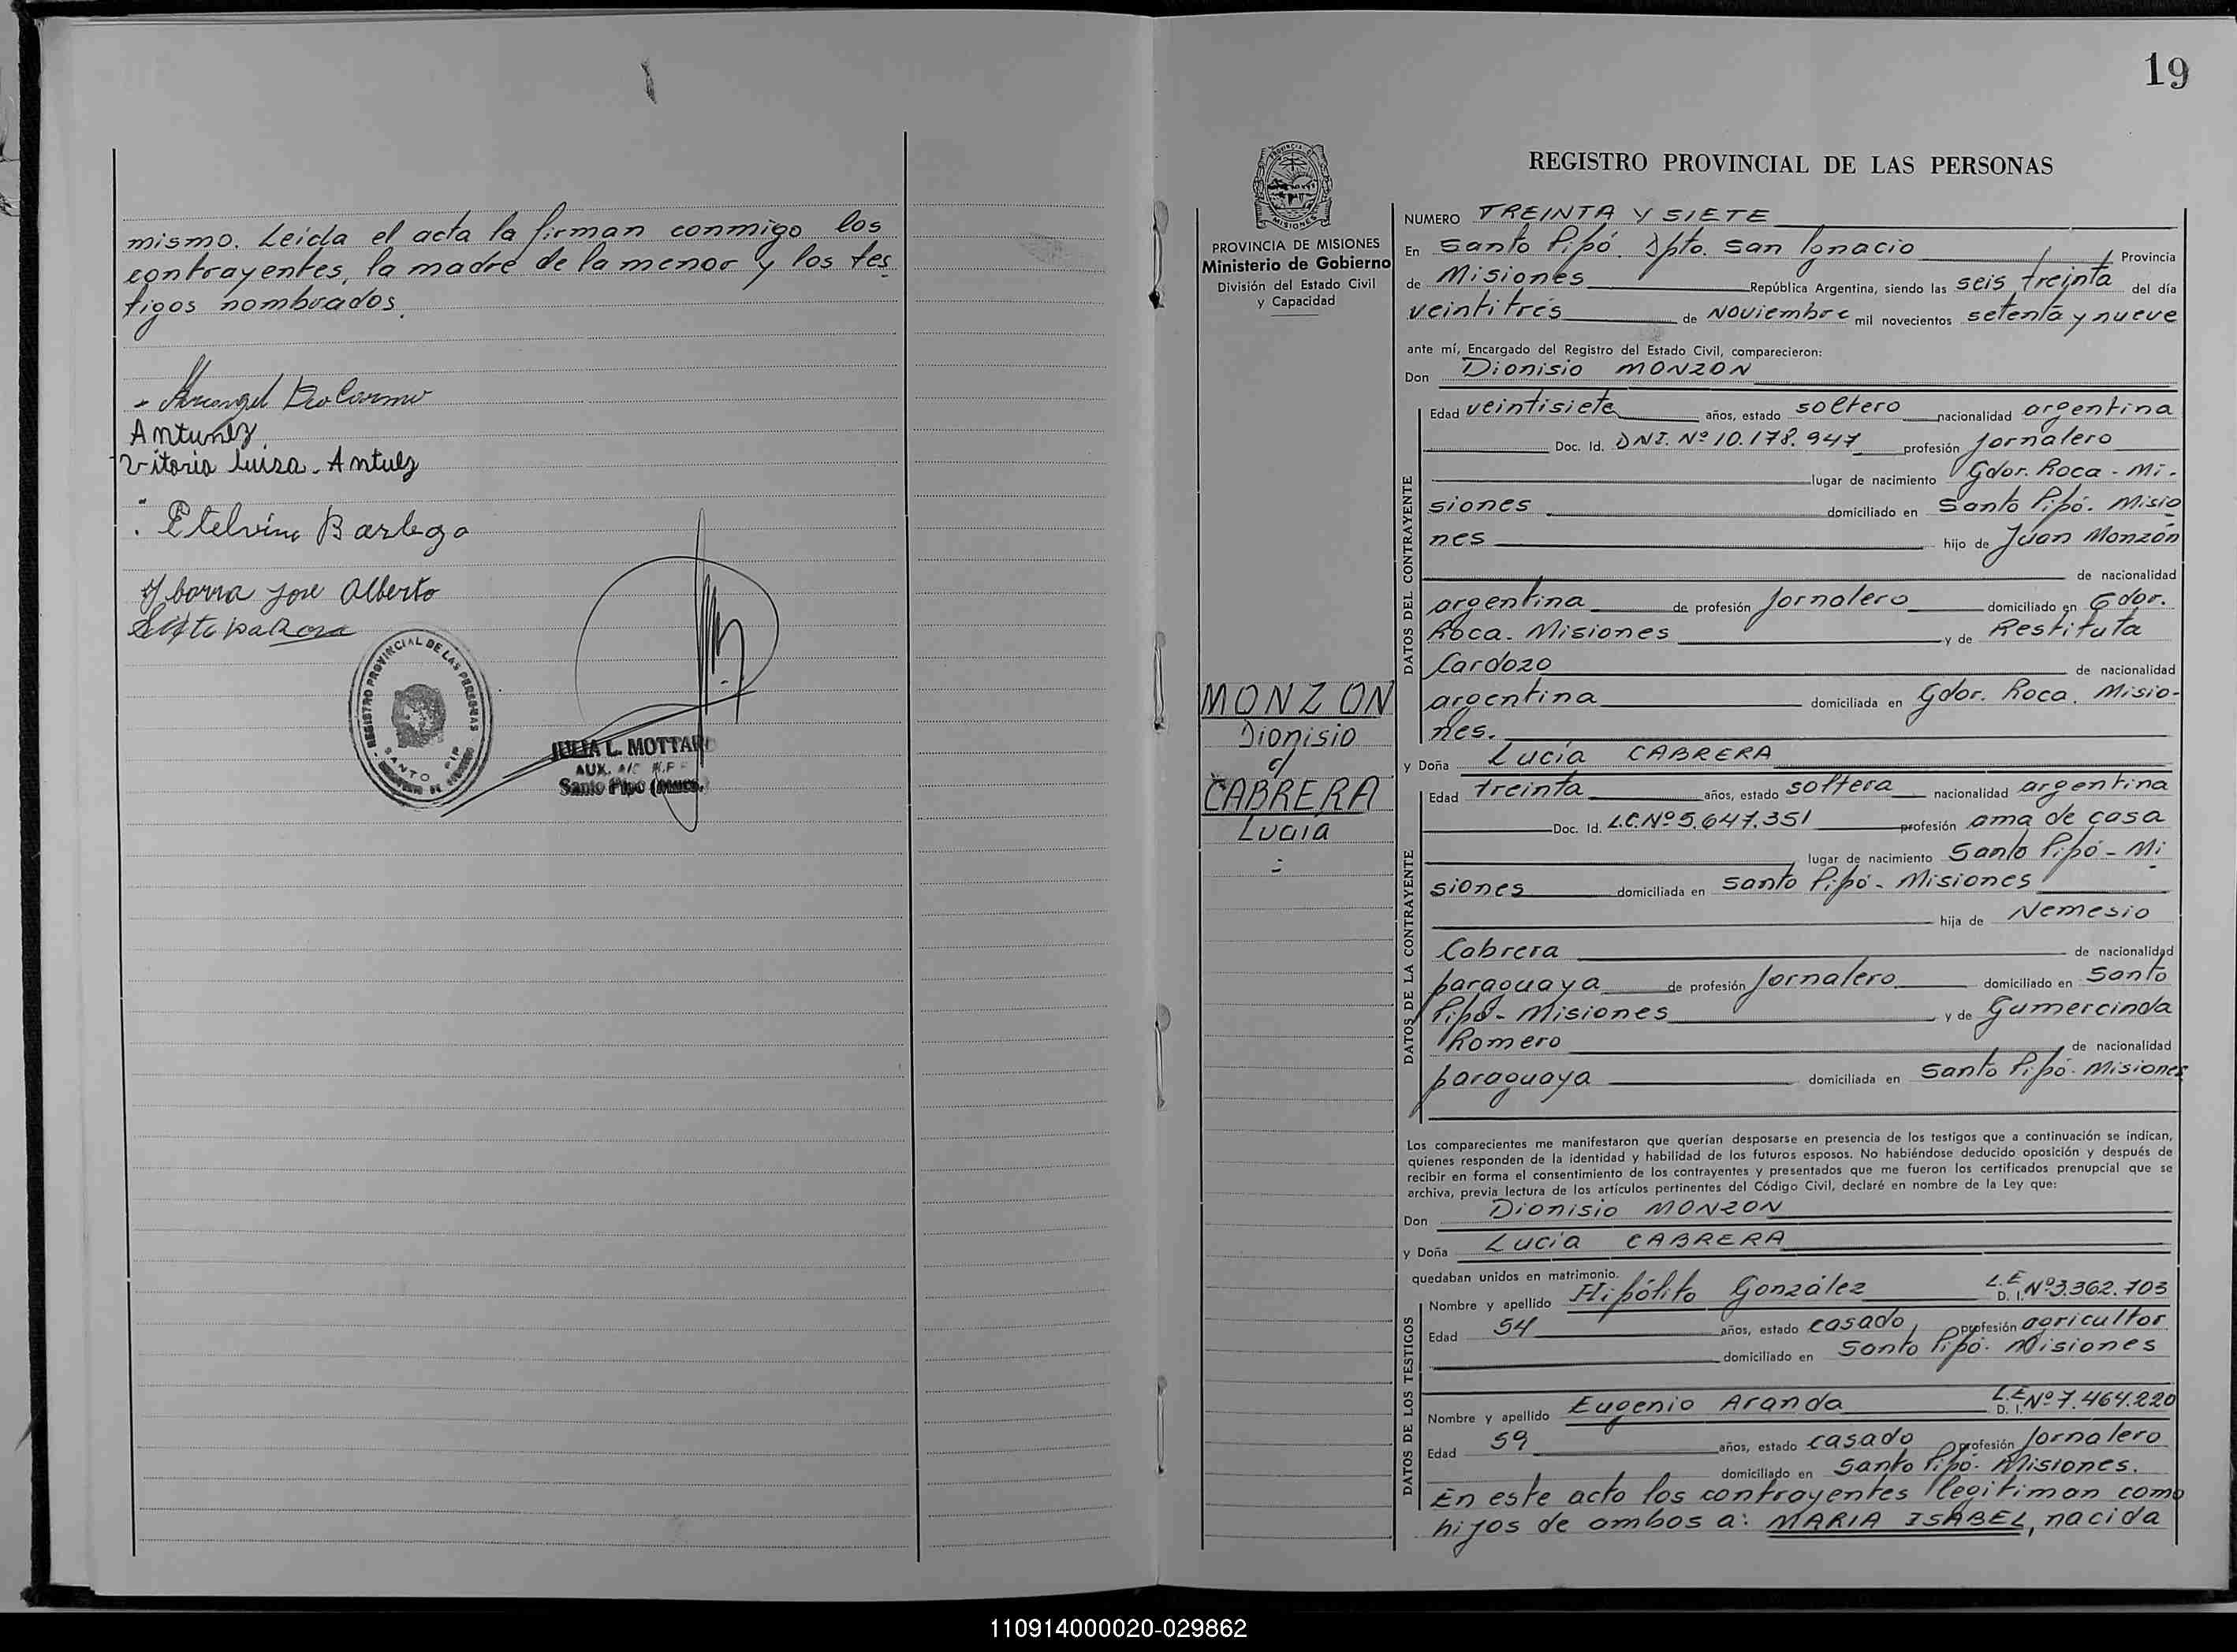 mismo. Leida el acta la firman conmigo los
contrayentes, la madre de la menor y los tes
tigos nombrados.
Antunez
Vitoria Luisa. Antulz
Etelvina
Ybarra Jose Alberto
REGISTRO PROVINCIAL DE LAS PERSONAS
SANTO PIPO
JULIA L. MOTTARD
AUX.
Santo Pipo (Mnes.)
19
PROVINCIA DE MISIONES
Ministerio de Gobierno
División del Estado Civil
y Capacidad
MONZON
Dionisio
c/
CABRERA
Lucia
REGISTRO PROVINCIAL DE LAS PERSONAS
NUMERO TREINTA Y SIETE
En Santo Pipó. Dpto. San Ignacio Provincia
de Misiones República Argentina, siendo las seis treinta del día
veintitrés de Noviembre mil novecientos setenta y nueve
ante mí, Encargado del Registro del Estado Civil, comparecieron:
Don Dionisio MONZON
DATOS DEL CONTRAYENTE
Edad veintisiete años, estado soltero nacionalidad argentina
Doc. Id. DNI. Nº 10.178.947 profesión jornalero
lugar de nacimiento Gdor. Roca - Mi-
siones domiciliado en Santo Pipó. Misio
nes hijo de Juan Monzón
de nacionalidad
argentina de profesión jornalero domiciliado en Gdor.
Roca. Misiones y de Restituta
Cardozo de nacionalidad
argentina domiciliada en Gdor. Roca. Misio-
nes.
y Doña Lucía CABRERA
DATOS DE LA CONTRAYENTE
Edad treinta años, estado soltera nacionalidad argentina
Doc. Id. L.C. Nº 5.647.351 profesión ama de casa
lugar de nacimiento Santo Pipó - Mi
siones domiciliada en Santo Pipó - Misiones
hija de Nemesio
Cabrera de nacionalidad
paraguaya de profesión jornalero domiciliado en Santo
Pipó - Misiones y de Gumercinda
Romero de nacionalidad
paraguaya domiciliada en Santo Pipó. Misiones
Los comparecientes me manifestaron que querían desposarse en presencia de los testigos que a continuación se indican,
quienes responden de la identidad y habilidad de los futuros esposos. No habiéndose deducido oposición y después de
recibir en forma el consentimiento de los contrayentes y presentados que me fueron los certificados prenupcial que se
archiva, previa lectura de los artículos pertinentes del Código Civil, declaré en nombre de la Ley que:
Don Dionisio MONZON
y Doña Lucía CABRERA
quedaban unidos en matrimonio.
DATOS DE LOS TESTIGOS
Nombre y apellido Hipólito González L.E. D. I. Nº 3.362.703
Edad 54 años, estado casado, profesión agricultor
domiciliado en Santo Pipó. Misiones
Nombre y apellido Eugenio Aranda L.E. D. I. Nº 7.464.220
Edad 59 años, estado casado profesión jornalero
domiciliado en Santo Pipó. Misiones.
En este acto los contrayentes llegitiman como
hijos de ambos a: MARIA ISABEL, nacida
110914000020-029862